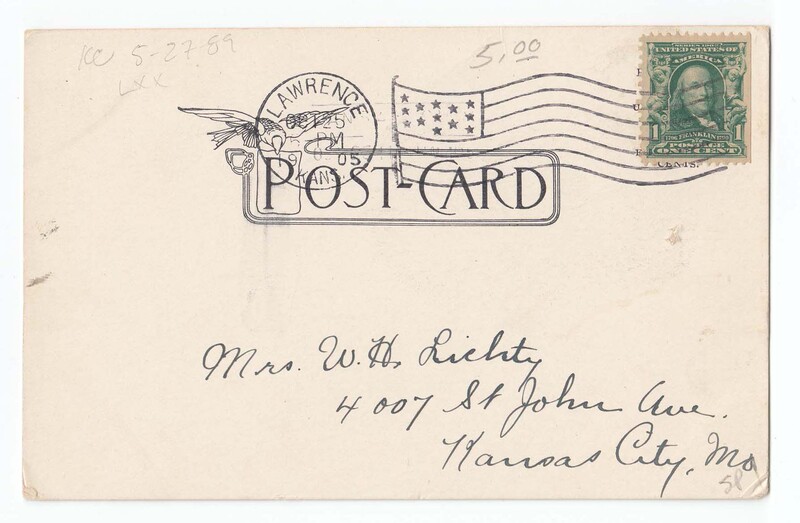 KC 5-27-89
LXX
5.00
LAWRENCE
OCT 25
PM
1905
KANS.
SERIES 1902
UNITED STATES OF
AMERICA
1 FRANKLIN 1
POSTAGE
ONE CENT
CENTS.
POST-CARD
Mrs. W. H. Lichty
4007 St John Ave.
Kansas City, Mo
SP